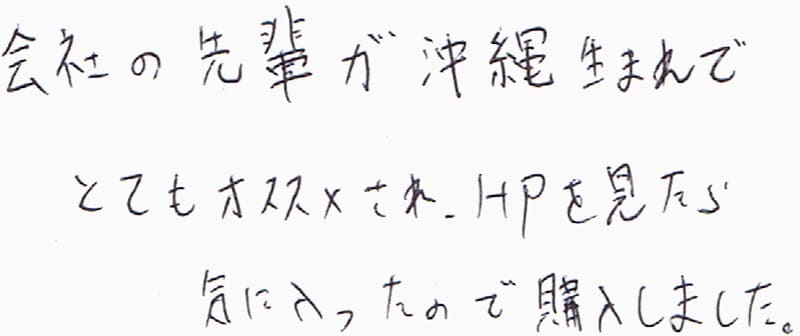 会社の先輩が沖縄生まれで
とてもオススメされ、HPを見たら
気に入ったので購入しました。